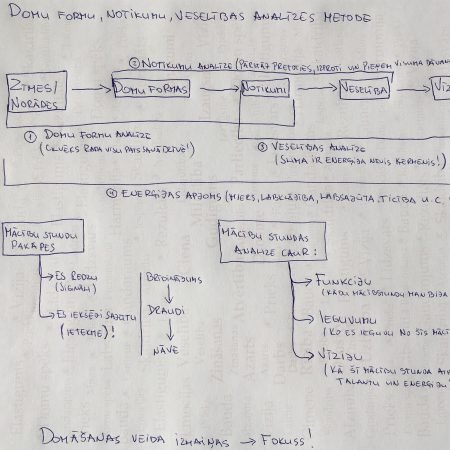 DOMU FORMU, NOTIKUMU, VESELĪBAS ANALĪZES METODE
② NOTIKUMU ANALĪZE (PĀRSTĀJ PRETOTIES, IZPROTI UN PIEŅEM VISUMA DĀVAN
ZĪMES/
NORĀDES
DOMU FORMAS
NOTIKUMI
VESELĪBA
VĪZ
① DOMU FORMU ANALĪZE
(CILVĒKS RADA VISU PATS SAVĀ DZĪVĒ!)
③ VESELĪBAS ANALĪZE
(SLIMA IR ENERĢIJA NEVIS ĶERMENIS!)
④ ENERĢIJAS APJOMS (MIERS, LABKLĀJĪBA, LABSAJŪTA, TICĪBA U.C.
MĀCĪBU STUNDU
PAKĀPES
ES REDZU
(SIGNĀLI)
ES IEKŠĒJI SAJŪTU
(IETEKME)!
BRĪDINĀJUMS
DRAUDI
NĀVE
MĀCĪBU STUNDAS
ANALĪZE CAUR:
FUNKCIJU
(KĀDU MĀCĪBSTUNDU MAN BIJA
IEGUVUMU
(KO ES IEGUVU NO ŠĪS MĀCĪ
VĪZIJU
(KĀ ŠĪ MĀCĪBU STUNDA
TALANTU UN ENERĢIJU
DOMĀŠANAS VEIDA IZMAIŅAS → FOKUSS!